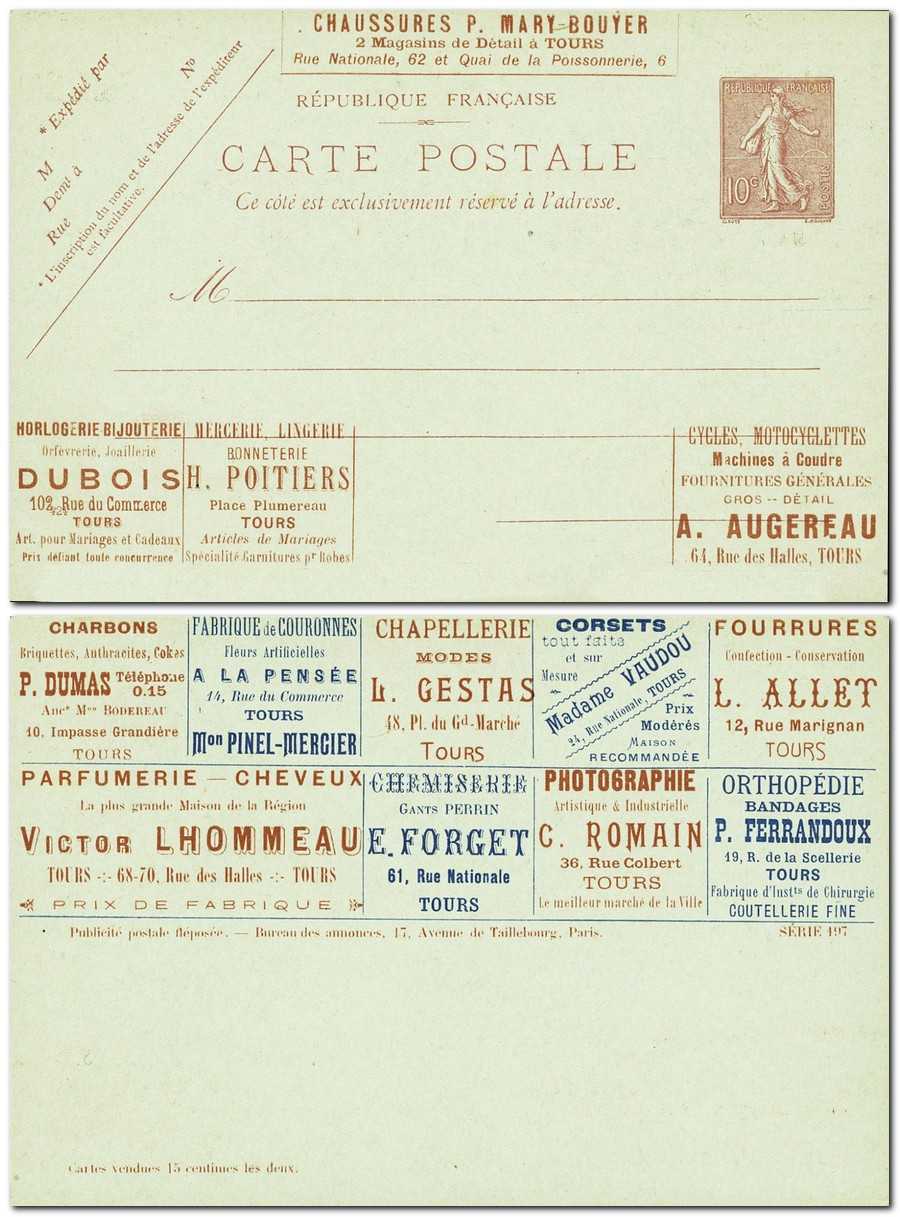 . CHAUSSURES P. MARY-BOUYER
2 Magasins de Détail à TOURS
Rue Nationale, 62 et Quai de la Poissonnerie, 6
* Expédié par
N°
M
Demt à
Rue
* L'inscription du nom et de l'adresse de l'expéditeur
est facultative.
RÉPUBLIQUE FRANÇAISE
CARTE POSTALE
Ce côté est exclusivement réservé à l'adresse.
REPUBLIQUE FRANÇAISE
10c
POSTES
M
HORLOGERIE-BIJOUTERIE
Orfèvrerie, Joaillerie
DUBOIS
102, Rue du Commerce
TOURS
Art. pour Mariages et Cadeaux
Prix défiant toute concurrence
MERCERIE, LINGERIE
BONNETERIE
H. POITIERS
Place Plumereau
TOURS
Articles de Mariages
Spécialité Garnitures pr Robes
CYCLES, MOTOCYCLETTES
Machines à Coudre
FOURNITURES GÉNÉRALES
GROS -- DÉTAIL
A. AUGEREAU
64, Rue des Halles, TOURS
CHARBONS
Briquettes, Anthracites, Cokes
P. DUMAS Téléphone
0.15
Ancne Mon BODEREAU
10, Impasse Grandière
TOURS
FABRIQUE de COURONNES
Fleurs Artificielles
A LA PENSÉE
14, Rue du Commerce
TOURS
Mon PINEL-MERCIER
CHAPELLERIE
MODES
L. GESTAS
48, Pl. du Gd-Marché
TOURS
CORSETS
tout faits
et sur
Mesure
Madame VAUDOU
24, Rue Nationale TOURS
Prix
Modérés
MAISON
RECOMMANDÉE
FOURRURES
Confection - Conservation
L. ALLET
12, Rue Marignan
TOURS
PARFUMERIE — CHEVEUX
La plus grande Maison de la Région
VICTOR LHOMMEAU
TOURS -:- 68-70, Rue des Halles -:- TOURS
PRIX DE FABRIQUE
CHEMISERIE
GANTS PERRIN
E. FORGET
61, Rue Nationale
TOURS
PHOTOGRAPHIE
Artistique & Industrielle
C. ROMAIN
36, Rue Colbert
TOURS
Le meilleur marché de la Ville
ORTHOPÉDIE
BANDAGES
P. FERRANDOUX
19, R. de la Scellerie
TOURS
Fabrique d'Insts de Chirurgie
COUTELLERIE FINE
Publicité postale déposée. — Bureau des annonces, 17, Avenue de Taillebourg, Paris.
SÉRIE 497
Cartes vendues 15 centimes les deux.